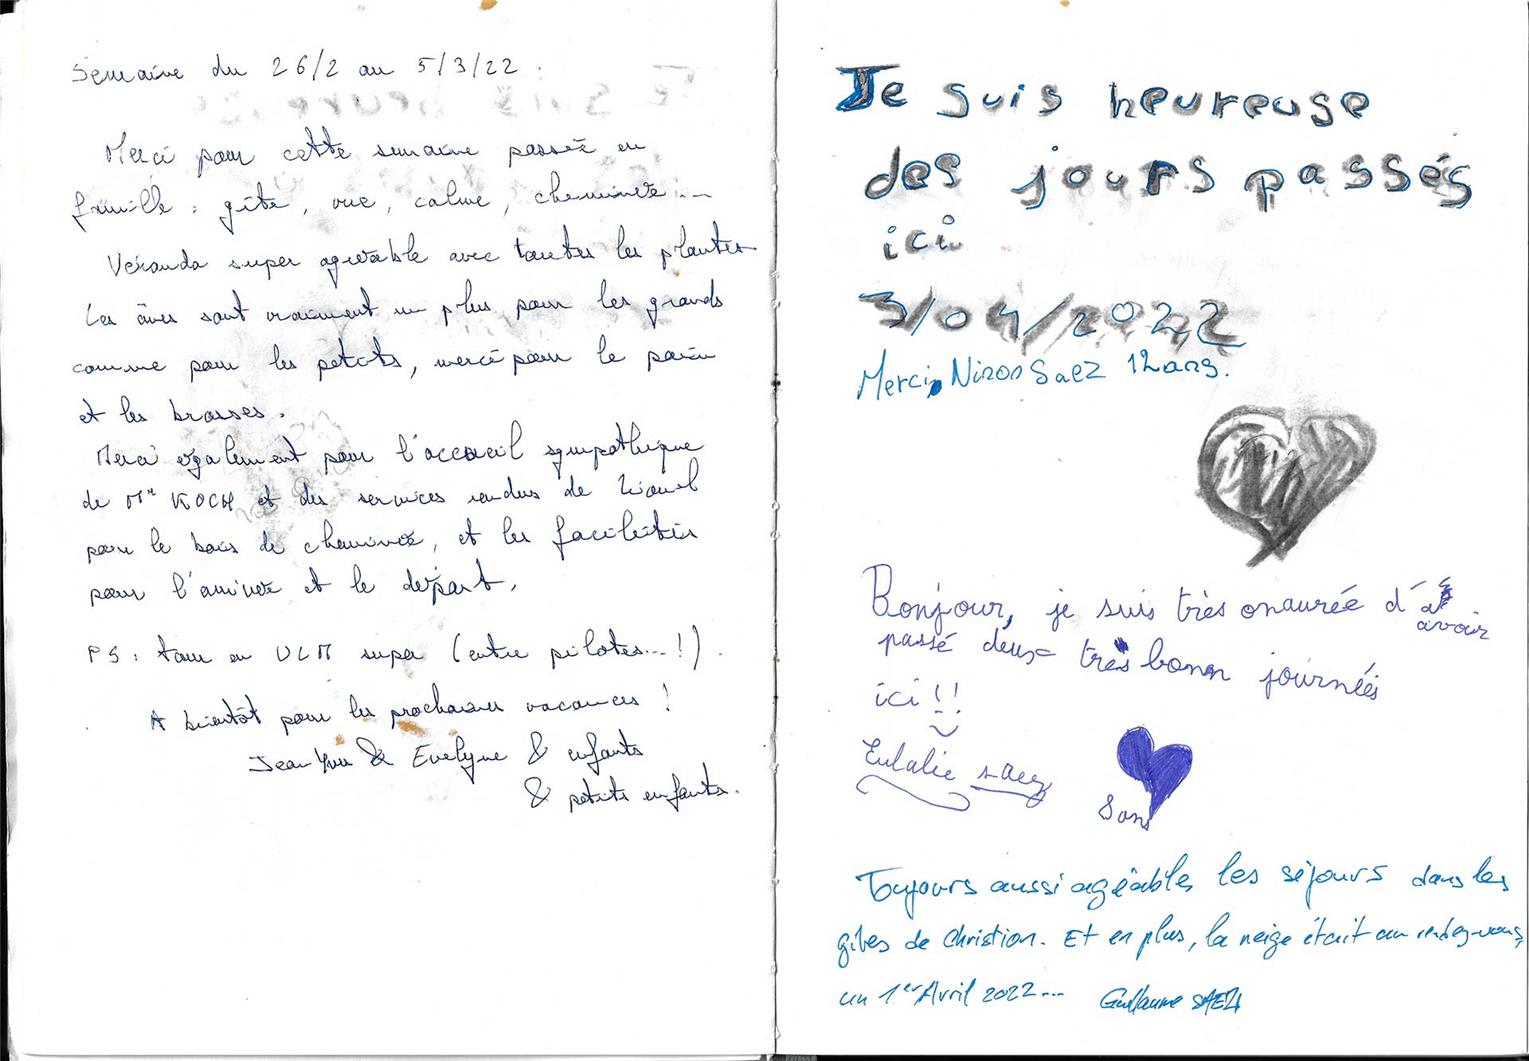 Semaine du 26/2 au 5/3/22.
Merci pour cette semaine passée en
famille : gîte, vue, calme, cheminée ...
Véranda super agréable avec toutes les plantes
Les ânes sont vraiment un plus pour les grands
comme pour les petits, merci pour le pain
et les brosses.
Merci également pour l'accueil sympathique
de Mr KOCH et des services rendus de Lionel
pour le bois de cheminée, et les facilités
pour l'arrivée et le départ.
PS : tour en ULM super (entre pilotes...!).
A bientôt pour les prochaines vacances !
Jean Yves & Evelyne & enfants
& petits enfants.
Je suis heureuse
des jours passés
ici
3/04/2022
Merci, Ninon Saez 12ans.
Bonjour, je suis très onaurée d'
avoir
passé deux très bonn journéés
ici !!
Eulalie saez
8ans
Toujours aussi agéables les séjours dans les
gîtes de Christian. Et en plus, la neige était au rendez-vous,
un 1er Avril 2022...
Guillaume SAEZ